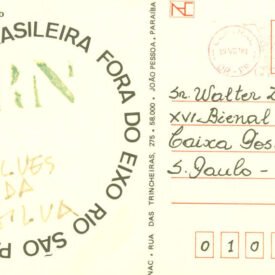 BRASILEIRA FORA DO EIXO RIO SÃO PA
RN
ALVES
DA
SILVA
NAC • RUA DAS TRINCHEIRAS, 275 • 58.000 • JOÃO PESSOA, PARAÍBA
Sr. Walter Z
XVI Bienal
Caixa Pos
S. Paulo -
0 1 0